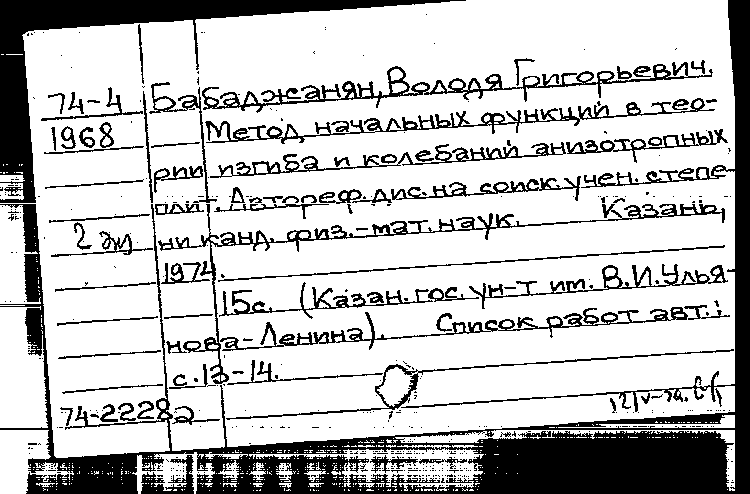 74-4 Бабаджанян, Володя Григорьевич.
1968 Метод начальных функций в тео-
рии изгиба и колебаний анизотропных
плит. Автореф. дис. на соиск. учен. степе-
2 эк ни канд. физ.-мат. наук. Казань,
1974.
15с. (Казан. гос. ун-т им. В.И. Улья-
нова-Ленина). Список работ авт.:
с. 13-14.
74-2228а